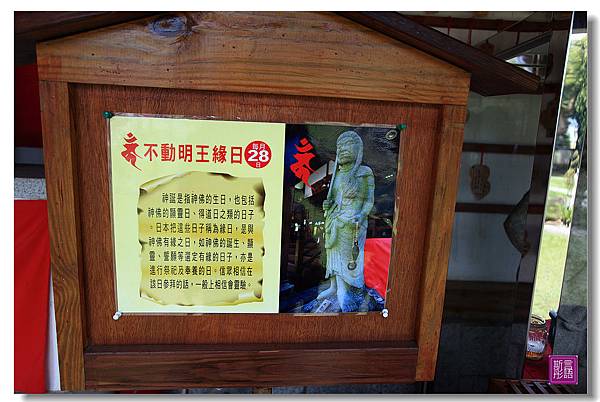 不動明王緣日
每月
28
日
神誕是指神佛的生日，也包括
神佛的顯靈日、得道日之類的日子
。日本把這些日子稱為緣日，是與
神佛有緣之日，如神佛的誕生、顯
靈、誓願等選定有緣的日子，亦是
進行祭祀及奉養的日。信眾相信在
該日參拜的話，一般上相信會靈驗。